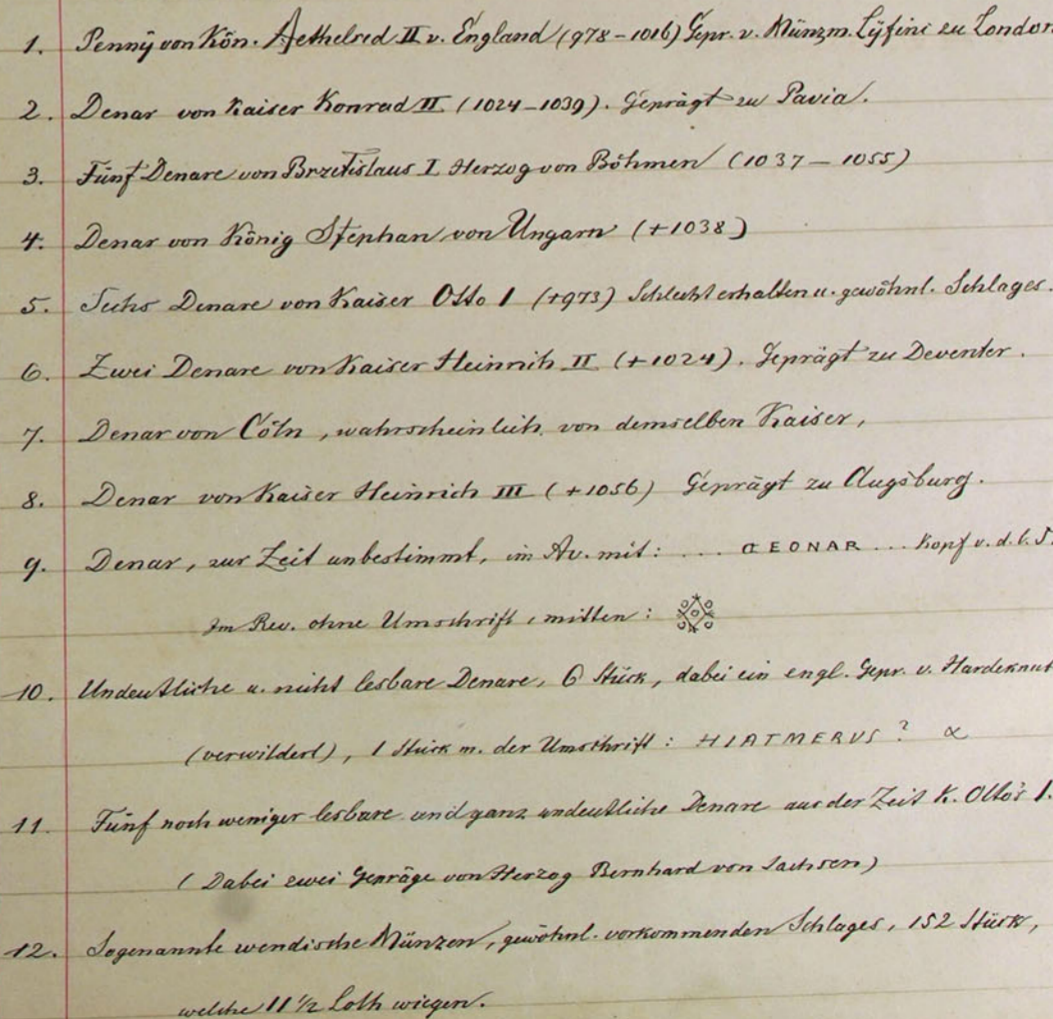 1. Penny von Kön. Aethelred II v. England (978-1016) Gepr. v. Münzm. Lÿfini zu London
2. Denar von Kaiser Konrad II. (1024-1039). Geprägt zu Pavia.
3. Fünf Denare von Brzetislaus I Herzog von Böhmen (1037-1055)
4. Denar von König Stephan von Ungarn (+1038)
5. Sechs Denare von Kaiser Otto I (+973) Schlecht erhalten u. gewöhnl. Schlages.
6. Zwei Denare von Kaiser Heinrich II (+1024). Geprägt zu Deventer.
7. Denar von Cöln, wahrscheinlich von demselben Kaiser,
8. Denar von Kaiser Heinrich III (+1056) Geprägt zu Augsburg.
9. Denar, zur Zeit unbestimmt, im Av. mit: ... EONAR ... Kopf v. d. l. S.
Im Rev. ohne Umschrift, mitten:
10. Undeutliche u. nicht lesbare Denare, 6 Stück, dabei ein engl. Gepr. v. Hardeknut
(verwildert), 1 Stück m. der Umschrift: HIATMERVS ?
11. Fünf noch weniger lesbare und ganz undeutliche Denare aus der Zeit K. Otto's I.
(Dabei zwei Gepräge von Herzog Bernhard von Sachsen)
12. Sogenannte wendische Münzen, gewöhnl. vorkommenden Schlages, 152 Stück,
welche 11 1/2 Loth wiegen.